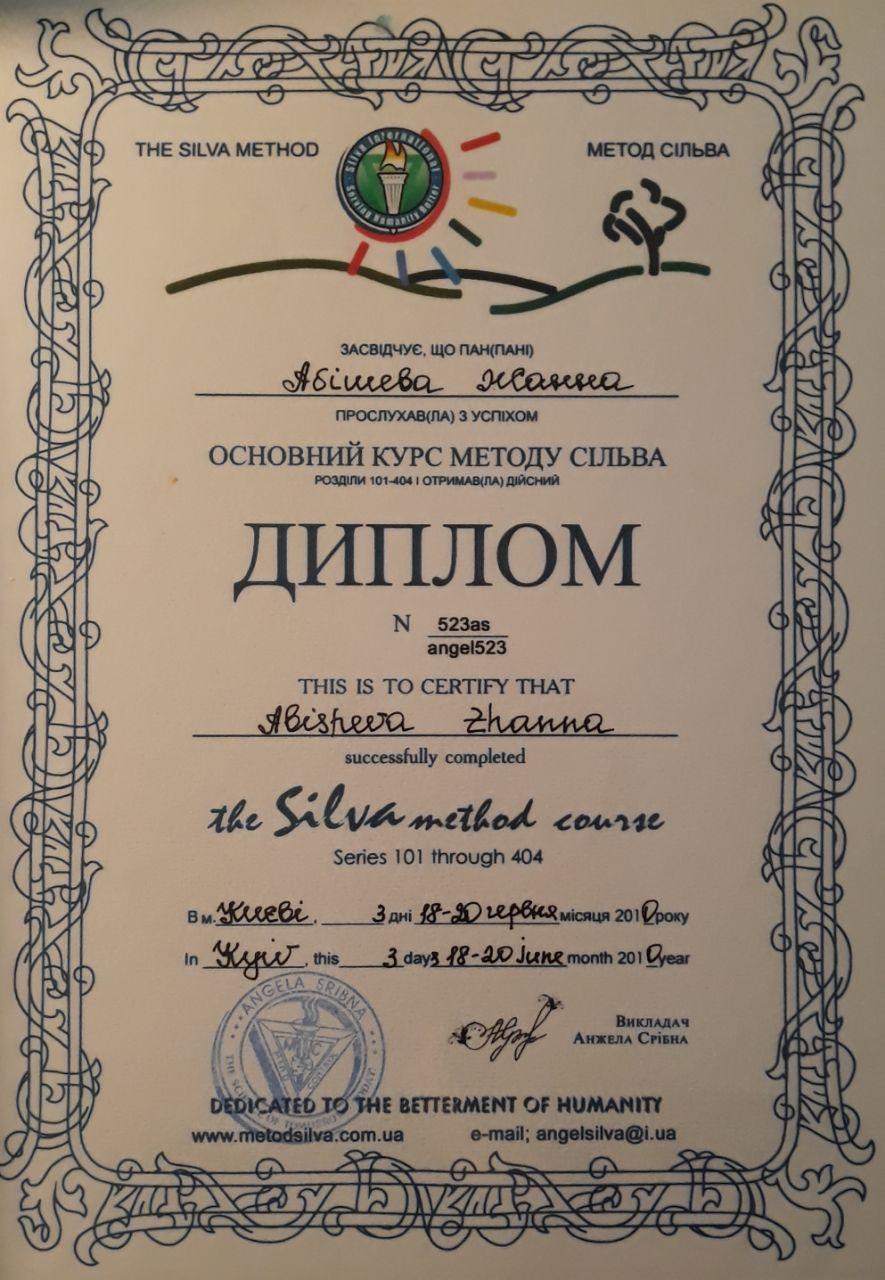 THE SILVA METHOD
Silva International
Serving Humanity Better
МЕТОД СІЛЬВА
ЗАСВІДЧУЄ, ЩО ПАН(ПАНІ)
Абішева Жанна
ПРОСЛУХАВ(ЛА) З УСПІХОМ
ОСНОВНИЙ КУРС МЕТОДУ СІЛЬВА
РОЗДІЛИ 101-404 І ОТРИМАВ(ЛА) ДІЙСНИЙ
ДИПЛОМ
N 523as
angel523
THIS IS TO CERTIFY THAT
Abisheva Zhanna
successfully completed
the Silva method course
Series 101 through 404
В м. Києві, 3 дні 18-20 червня місяця 2010 року
In Kyiv, this 3 days 18-20 june month 2010 year
ANGELA SRIBNA
Викладач
Анжела Срібна
DEDICATED TO THE BETTERMENT OF HUMANITY
www.metodsilva.com.ua e-mail; angelsilva@i.ua